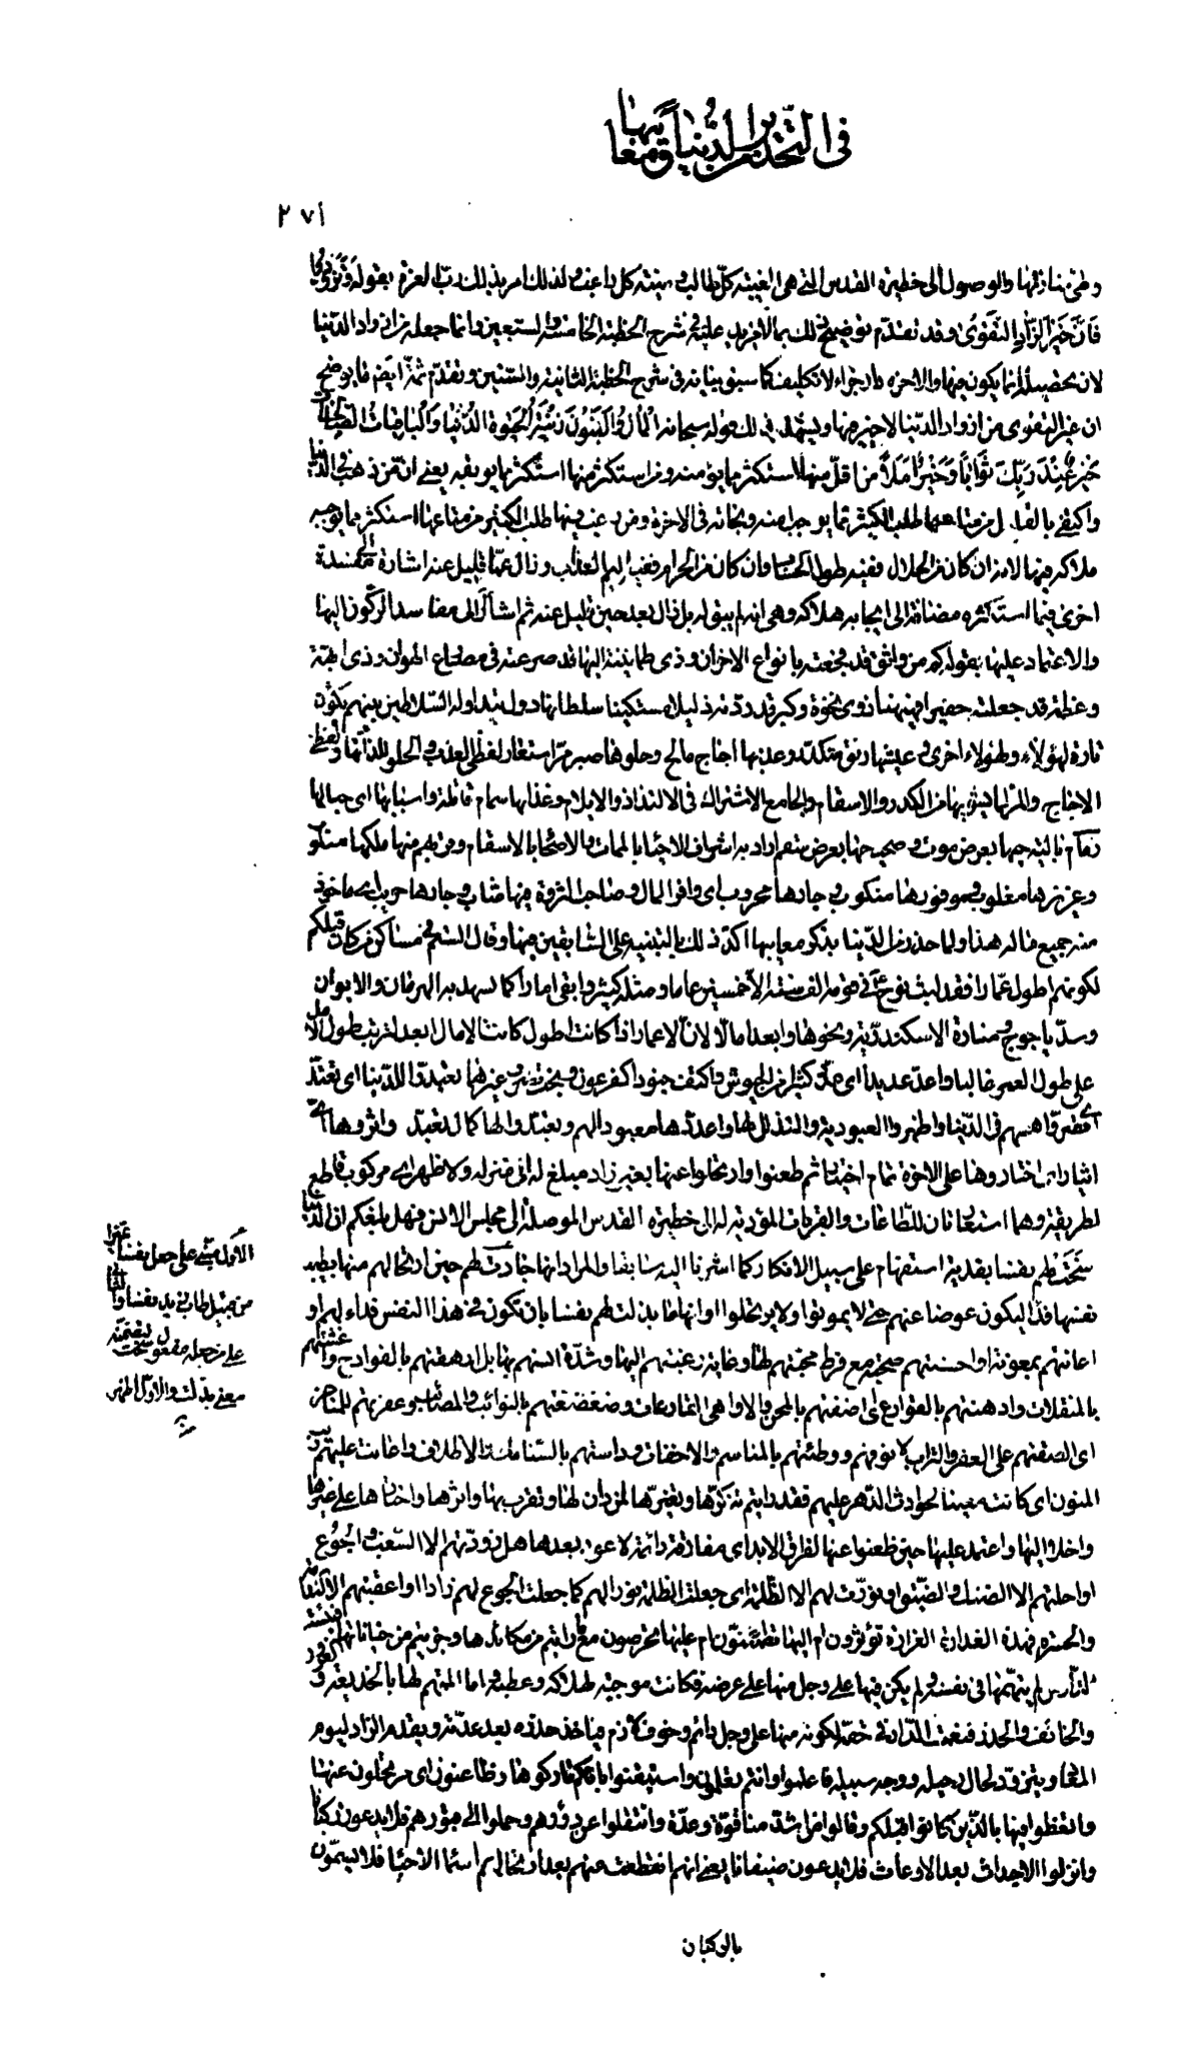 في التحذير من الدنيا ومعايبها
٢٧١
وطيّ منازلها والوصول إلى حظيرة القدس التي هي الغيته كلّ طالب ومنية كل راغب ولذلك امر بذلك ربّ العزة بقوله وَتَزَوَّدُوا
فَاِنَّ خَيْرَ الزّادِ التَّقْوىٰ وقد تقدّم توضيح ذلك بما لا مزيد عليه في شرح الخطبة الخامسة والستعين وانما جعله من ازواد الدنيا
لان تحصيله انما يكون فيها والاخرة دار جزاء لا تكليف كما سبق بيانه في شرح الخطبة الثانية والستين وتقدّم ثمّة ايضا ما يوضح
ان غير التقوى من ازواد الدنيا لا خير فيها ويشهد بذلك قوله سبحانه اَلْمالُ وَالْبَنُونَ زينَةُ الْحَيوةِ الدُّنْيا وَالْباقِياتُ الصّالِحاتُ
خَيْرٌ عِنْدَ رَبِّكَ ثَواباً وَخَيْرٌ اَمَلاً من اقلّ منها استكثر مما يؤمنه ومن استكثر منها استكثر مما يوبقه يعني انّ من زهد في الدنيا
واكتفى بالقليل من متاعها طلب الكثير مما يوجب امنه ونجاته في الاخرة ومن رغب فيها طلب الكثير من متاعها استكثر مما يوجب
هلاكه فيها لانه ان كان من الحلال ففيه طول الحساب وان كان من الحرام ففيه اليم العذاب وزال عمّا قليل عنه اشارة الى مفسدة
اخرى فيما استكثره مضافة الى ايجابه هلاكه وهي انه لم يبق له بل زال بعد حين قليل عنه ثم اشار الى مفاسد الركون اليها
والاعتماد عليها بقوله كم من واثق قد فجعته بانواع الاحزان وذي طمأنينة اليها قد صرعته في مصارع الهوان وذي ابهة
وعظمة قد جعلته حقيرا مهينا وذي نخوة وكبر قد ردّته ذليلا مستكينا سلطانها دول يتداوله السلاطين بينهم يكون
تارة لهؤلاء وطهولاء اخرى وعيشها رنق متكدّر وعذبها اجاج مالح وحلوها صبر مرّ استعار لفظي العذب والحلو للذاتها ولفظي
الاجاج والمرّ لما يشوبها من الكدر والاسقام والجامع الاشتراك في الالتذاذ والايلام وغذاؤها سمام قاتلة واسبابها اي حبالها
رمام بالية حيها بعرض موت وصحيحها بعرض سقم اراد به اشراف الاحياء بالممات والاصحاء بالاسقام
وعزيزها مغلوب وموفورها منكوب وجارها محروب اي وافر المال وصاحب الثروة فيها مصاب وجارها حريب اي ماخوذ
منه جميع ماله هذا ولما حذر من الدنيا بذكر معايبها اكّد ذلك بالتنبيه على السابقين فيها وقال الستم في مساكن من كان قبلكم
لكونهم اطول عمارا فقد لبث نوح في قومه الف سنة الّا خمسين عاما ومثله كثير وابقى اثارا كما يشهد به الهرمان والايوان
وسدّ ياجوج ومنارة الاسكندرية ونحوها وابعد امالا لانّ الاعمار اذا كانت اطول كانت الامال ابعد لترتب طول الامل
على طول العمر غالبا واعدّ عديدا اي عدّ كثيرا من الجيوش واكثف جنودا كفرعون وبخت نصر وغيرهما تعبدوا للدنيا اي تعبّد
اي قصروا همهم في الدنيا واظهروا العبودية والتذلل لها واعدّها معبودا لهم وتعبدوا لها كمال تعبد واثروها اي
ايثار اي اختاروها على الاخرة تمام اختيار ثم ظعنوا وارتحلوا عنها بغير زاد مبلغ له الى منزله ولا ظهر اي مركوب قاطع
لطريقه وهما استعارتان للطاعات والقربات المؤدية له الى حظيرة القدس الموصلة الى مجلس الانس فهل بلغكم ان الدنيا
سَخَتْ لهم نفسا بفدية استفهام على سبيل الانكار كما اشرنا اليه سابقا والمراد انها ما جادت لهم حين ارتحالهم منها بطيب
نفسها فداء ليكون عوضا عنهم حتى لا يموتوا ولا يرتحلوا او انها ما بذلت لهم نفسا بان تكون في هذا النفس فداء لهم او
اعانتهم بمعونة او احسنت لهم صحبة مع فرط محبتهم لها وغاية رغبتهم اليها وشدّة انسهم بها بل ارهقتهم بالفوادح وغشتهم
بالمثقلات واوهنتهم بالقوارع اي اضعفتهم بالمحن والدواهي القارعات وضعضعتهم بالنوائب والمصائب وعفرتهم للمناخر
اي الصقتهم على العفر والتراب لانوفهم ووطئتهم بالمناسم والاخفاف وداستهم بالسنابك والاظلاف واعانت عليهم ريب
المنون اي كانت معينا لحوادث الدهر عليهم فقد رايتم تنكرها وتغيرها لمن دان لها وتقرب بها واثرها واختارها على غيرها
واخلد اليها واعتمد عليها حين ظعنوا عنها لفراق الابد اي مفارقة دائمة لا عود بعدها هل زودتهم الا السغب والجوع
او احلتهم الا الضنك والضيق او نوّرت لهم الا الظلمة اي جعلت الظلمة نورا لهم كما جعلت الجوع لهم زادا او اعقبتهم الا الندامة
والحسرة فهذه الغدارة الغرارة تؤثرون ام اليها تطمئنون ام عليها تحرصون مع ما رايتم من مكائدها وجربتم من خياناتها فبئست الدار
لم يتهمها في نفسه ولم يكن فيها على وجل منها على عرضه فكانت موجبة لهلاكه وعطبه واما المتهم لها بالخديعة و
والخائف والحذر فنعمت الدار في حقه لكونه منها على وجل دائم وخوف لازم فياخذ حذره بعد عدّته ويقدم الزاد ليوم
المعاد ويتزود لحال رحيله ووجه سبيله فاعلموا وانتم تعلمون واستيقنوا بانكم تاركوها وظاعنون اي مرتحلون عنها
واتعظوا فيها بالذين كانوا قبلكم وقالوا من اشدّ منا قوّة وعدّة وانتقلوا عن دورهم وحملوا الى قبورهم فلا يدعون ركبانا
وانزلوا الاجداث بعد الاوعاث فلا يدعون ضيفانا يعني انهم انقطعت عنهم بعد ارتحالهم اسماء الاحياء فلا يسمّون
بالركبان
الاول مبني على جعل نفسا تميزا
من قبيل طاب زيد نفسا والثاني
على جعله مفعول سخت بتضمنه
معنى بذلت والاول اظهر
منه